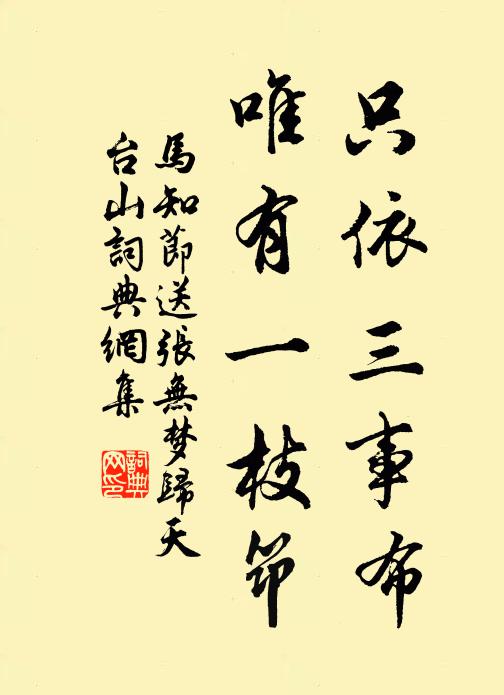 只依三事布
唯有一枝筇
馬知節送張無梦歸天
台山詞典網集
詞典
网印